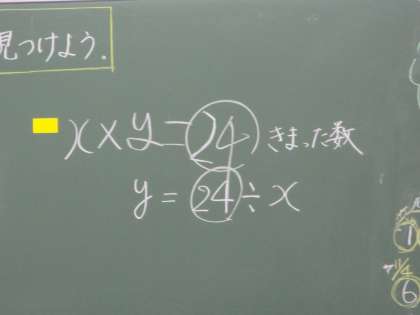 見つけよう.
x×y=24 きまった数
y=24÷x
1
6